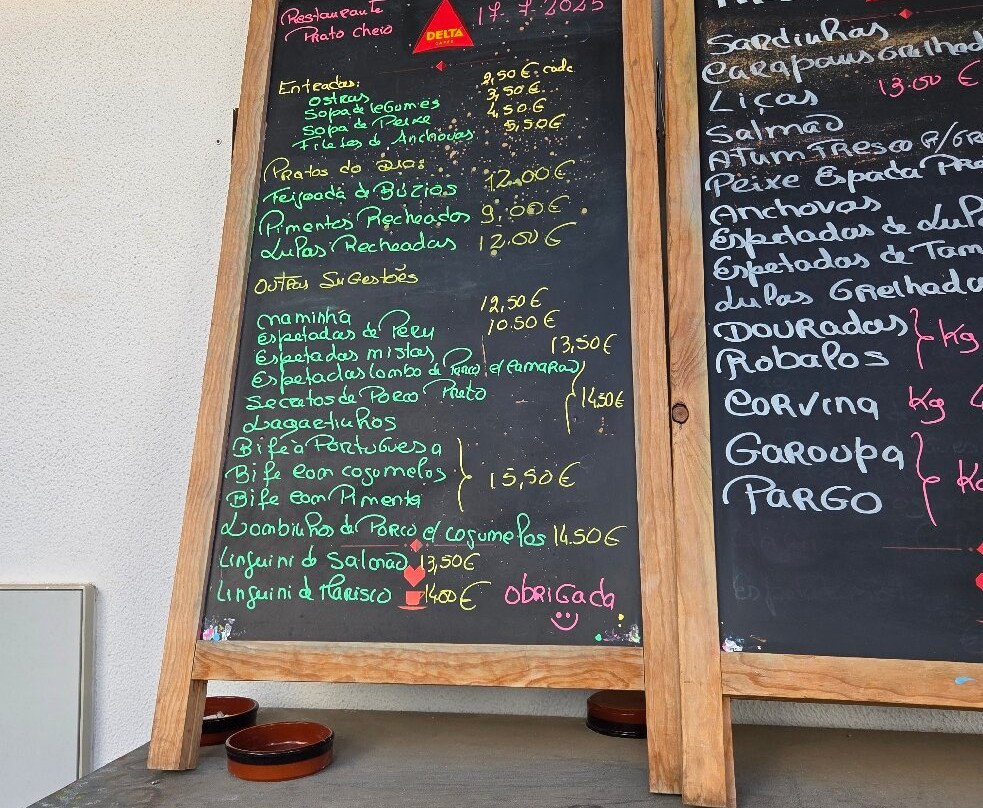 Restaurante
Prato cheio
DELTA
CAFÉS
17.7.2025
Entradas:
Ostras 2,50€ cada
Sopa de legumes 3,50€
Sopa de Peixe 4,50€
Filetes de Anchovas 5,50€
Pratos do Dia:
Feijoada de Búzios 12.00€
Pimentos Recheados 9,00€
Lulas Recheadas 12.00€
Outras Sugestões
Maminha 12,50€
Espetadas de Peru 10.50€
Espetadas mistas 13,50€
Espetadas lombo de Porco c/ Camarão
Secretos de Porco Preto 14.50€
Lagartinhos
Bife à Portuguesa
Bife com cogumelos 15,50€
Bife com Pimenta
Lombinhos de Porco c/ cogumelos 14.50€
Linguini de Salmão 13,50€
Linguini de Marisco 14.00€
Obrigada
Sardinhas
Carapaus Grelhad
Liças 13.00€
Salmão
Atum Fresco P/GR
Peixe Espada Pre
Anchovas
Espetadas de Lula
Espetadas de Tam
Lulas Grelhada
Douradas
Robalos Kg
Corvina Kg
Garoupa
Pargo